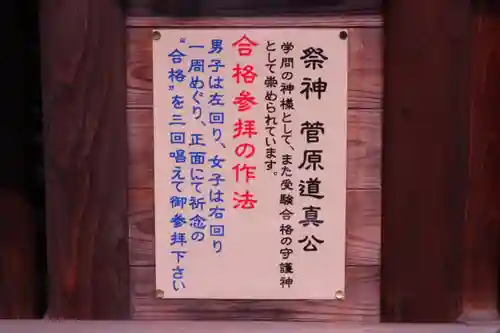 祭神 菅原道真公
学問の神様として、また受験合格の守護神
として崇められています。
合格参拝の作法
男子は左回り、女子は右回り
一周めぐり、正面にて祈念の
“合格”を三回唱えて御参拝下さい